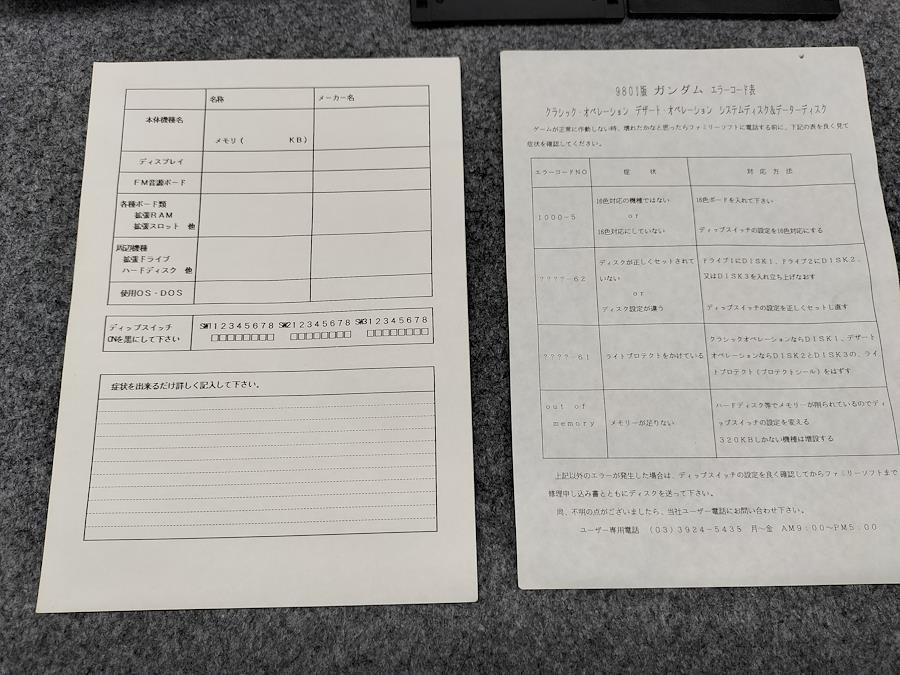 名称 メーカー名
本体機種名
メモリ( KB)
ディスプレイ
FM音源ボード
各種ボード類
拡張RAM
拡張スロット 他
周辺機種
拡張ドライブ
ハードディスク 他
使用OS-DOS
ディップスイッチ SW1 1 2 3 4 5 6 7 8 SW2 1 2 3 4 5 6 7 8 SW3 1 2 3 4 5 6 7 8
ONを黒にして下さい □□□□□□□□ □□□□□□□□ □□□□□□□□
症状を出来るだけ詳しく記入して下さい。
9801版 ガンダム エラーコード表
クラシック・オペレーション デザート・オペレーション システムディスク&データーディスク
ゲームが正常に作動しない時、壊れたかなと思ったらファミリーソフトに電話する前に、下記の表を良く見て
症状を確認してください。
エラーコードNO 症 状 対 応 方 法
1000-5
16色対応の機種ではない
or
16色対応にしていない
16色ボードを入れて下さい
ディップスイッチの設定を16色対応にする
????-62
ディスクが正しくセットされて
いない
or
ディスク設定が違う
ドライブ1にDISK1、ドライブ2にDISK2、
又はDISK3を入れ立ち上げなおす
ディップスイッチの設定を正しくセットし直す
????-61
ライトプロテクトをかけている
クラシックオペレーションならDISK1、デザート
オペレーションならDISK2とDISK3の、ライ
トプロテクト(プロテクトシール)をはずす
out of
memory
メモリーが足りない
ハードディスク等でメモリーが削られているのでディ
ップスイッチの設定を変える
320KBしかない機種は増設する
上記以外のエラーが発生した場合は、ディップスイッチの設定を良く確認してからファミリーソフトまで
修理申し込み書とともにディスクを送って下さい。
尚、不明の点がございましたら、当社ユーザー電話にお問い合わせ下さい。
ユーザー専用電話 (03)3924-5435 月~金 AM9:00~PM5:00